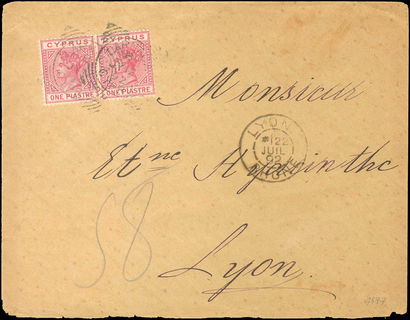 CYPRUS CYPRUS
ONE PIASTRE ONE PIASTRE
Monsieur
LYON
22
JUIL
92
RHONE
Etne Hyacinthe
58
Lyon.